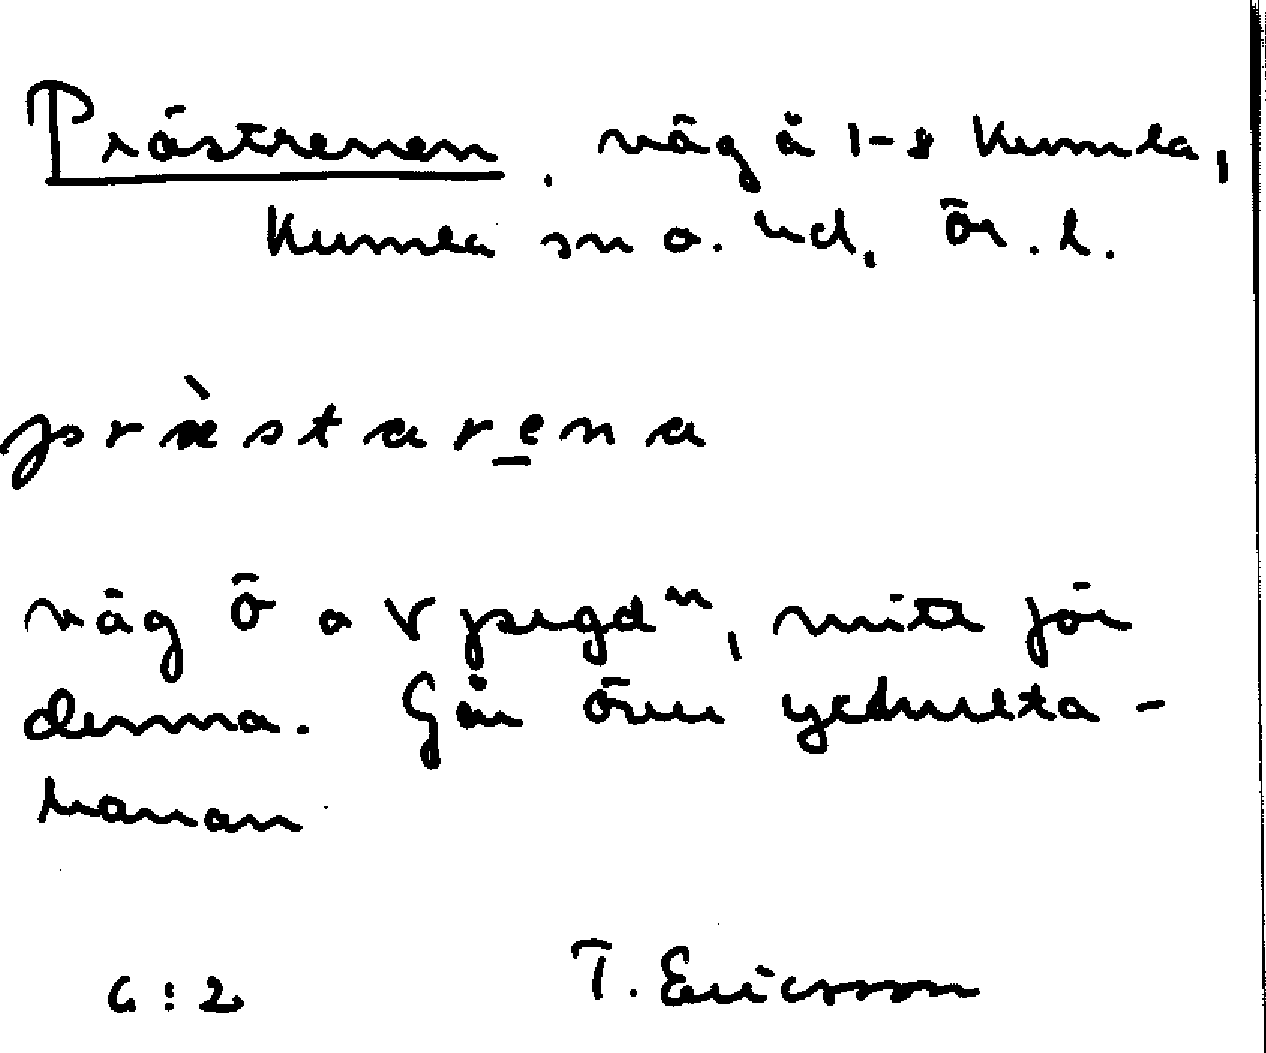 Prästrenen. väg å 1-8 Kumla,
Kumla sn o. hd, Ör. l.
præ̀starena
väg Ö o V psegd^n, mitt för
denna. Går över
banan
C:2 T. Ericsson